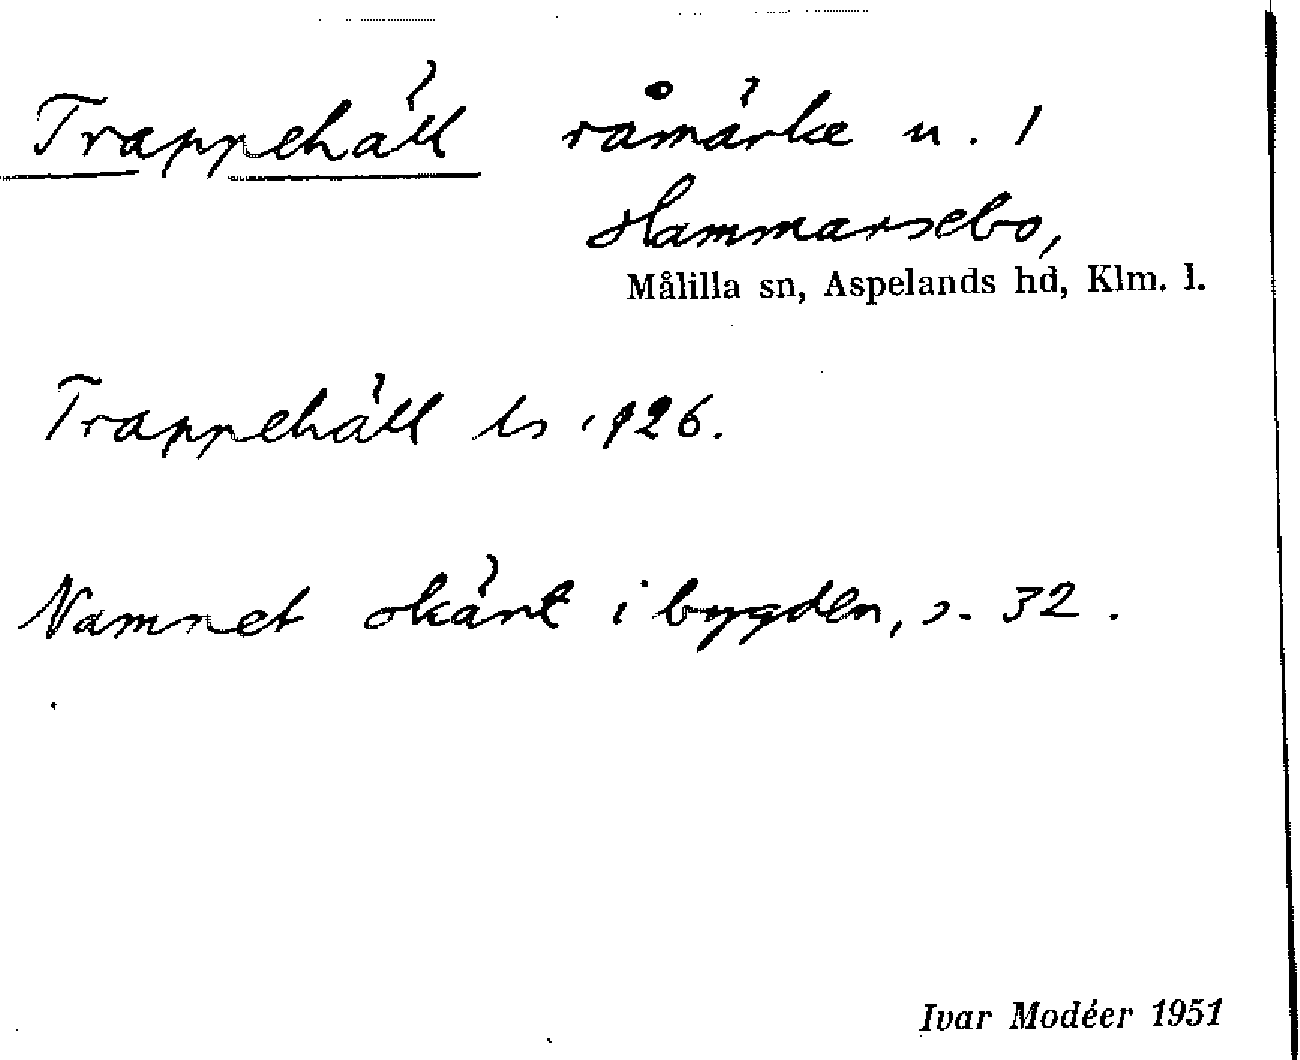 Trappehäll råmärke n. 1
Hammarsebo,
Målilla sn, Aspelands hd, Klm. l.
Trappehäll ls 1926.
Namnet okänt i bygden, s. 32.
Ivar Modéer 1951